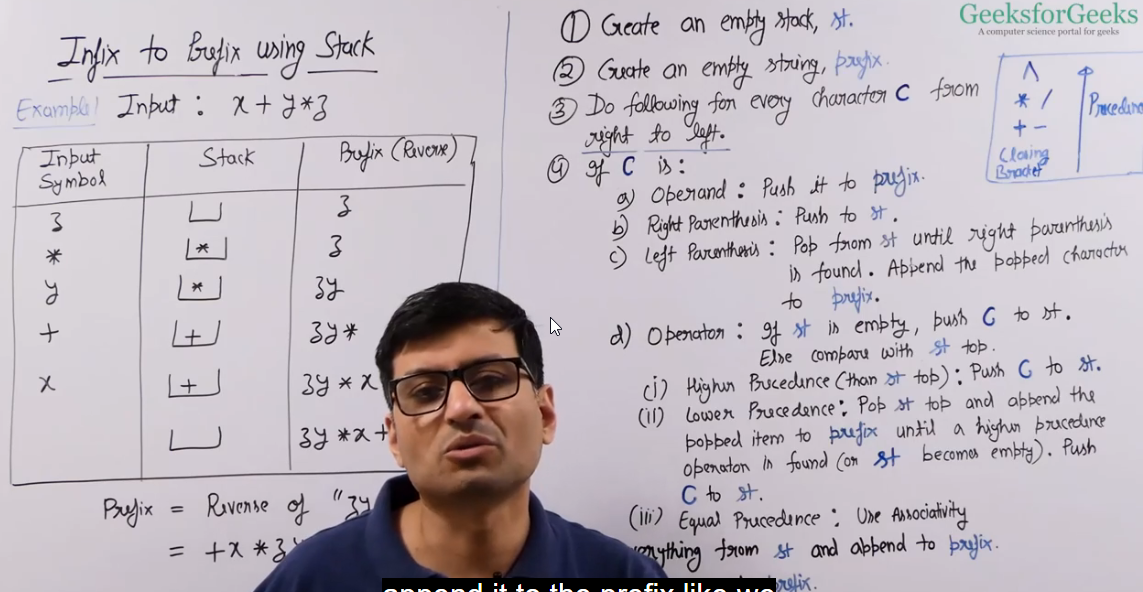 GeeksforGeeks
A computer science portal for geeks
Infix to Prefix using Stack
Example! Input : x + y * z
Input Symbol
Stack
Prefix (Reverse)
z
z
*
*
z
y
*
zy
+
+
zy*
x
+
zy * x
zy * x +
Prefix = Reverse of "zy
= + x * zy
① Create an empty stack, st.
② Create an empty string, prefix.
③ Do following for every character C from
right to left.
④ If C is:
a) Operand : Push it to prefix.
b) Right Parenthesis : Push to st.
c) Left Parenthesis : Pop from st until right parenthesis
is found. Append the popped character
to prefix.
d) Operator : If st is empty, push C to st.
Else compare with st top.
(i) Higher Precedence (than st top) : Push C to st.
(ii) Lower Precedence : Pop st top and append the
popped item to prefix until a higher precedence
operator is found (or st becomes empty). Push
C to st.
(iii) Equal Precedence : Use Associativity
everything from st and append to prefix.
prefix.
^
* /
+ -
Closing
Bracket
Precedenc
append it to the prefix like we